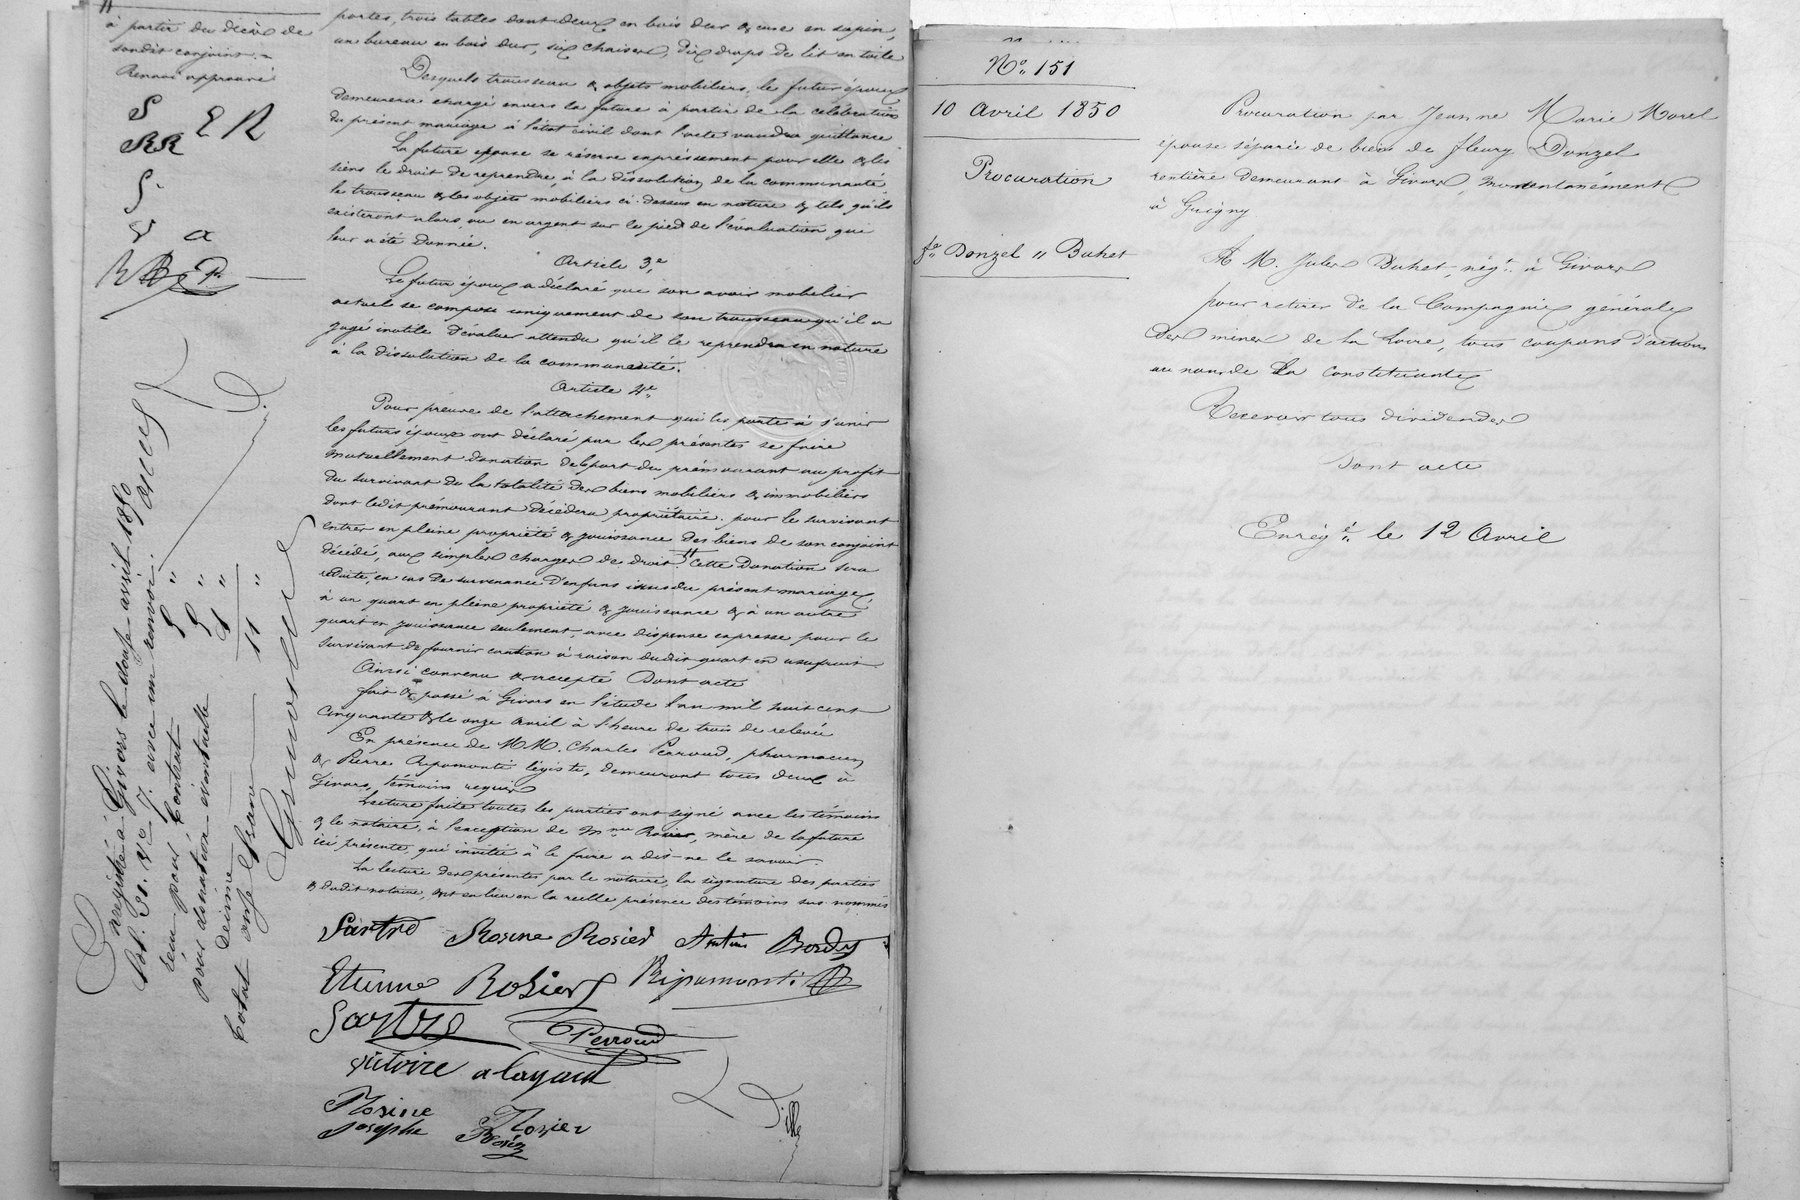 à partir du décès de
sondit conjoint.
Renvoi approuvé
S
E R
RR
S.
a
P.
portes, trois tables dont deux en bois dur & une en sapin,
un bureau en bois dur, six chaises, dix draps de lit en toile
Desquels trousseau & objets mobiliers, le futur époux
demeurera chargé envers la future à partir de la célébration
du présent mariage à l'état civil dont l'acte vaudra quittance
La future épouse se réserve expréssement pour elle & les
siens le droit de reprendre, à la dissolution de la communauté
le trousseau & les objets mobiliers ci-dessus en nature & tels qu'ils
existeront alors, ou en argent sur le pied de l'évaluation qui
leur a été donnée.
Article 3e
Le futur époux a déclaré que son avoir mobilier
actuel se compose uniquement de son trousseau qu'il a
jugé inutile d'évaluer attendu qu'il le reprendra en nature
à la dissolution de la communauté.
Article 4e
Pour preuve de l'attachement qui les porte à s'unir
les futurs époux ont déclaré par les présentes se faire
mutuellement donation de la part du prémourant au profit
du survivant de la totalité des biens mobiliers & immobiliers
dont ledit prémourant décèdera propriétaire. pour le survivant
entrer en pleine propriété & jouissance des biens de son conjoint
décédé, aux simples charges de droit. // Cette donation sera
réduite, en cas de survenance d'enfans issus du présent mariage,
à un quart en pleine propriété & jouissance & à un autre
quart en jouissance seulement, avec dispense expresse pour le
survivant de fournir caution à raison dudit quart en usufruit
Ainsi convenu & accepté Dont acte
fait & passé à Givors en l'étude l'an mil huit cent
cinquante & le onze Avril à l'heure de trois de relevée
En présence de MM. Charles Perroud, pharmacien
& Pierre Ripamonti légiste, demeurant tous deux à
Givors, témoins requis
Lecture faite toutes les parties ont signé avec les témoins
& le notaire, à l'exception de Mme Rosier, mère de la future
ici présente, qui invitée à le faire a dit ne le savoir.
La lecture des présentes par le notaire, la signature des parties
& dudit notaire, ont eu lieu en la réelle présence des témoins sus-nommés
Sartre Rosine Rosier Antoin Bordy
Etienne Rosier Ripamonti
Sartre Perroud
victoire alayand
Rosine Rosier
Josephe
Enregistré à Givors le douze avril 1850
fol. 31. Vo C. 7. avec un renvoi.
reçu pour Contrat 5 "
pour donation éventuelle 5 "
Décime 1 "
Total onze francs 11 "
No. 151
10 Avril 1850
Procuration
fe Donzel " Buhet
Procuration par Jeanne Marie Morel
épouse séparée de biens de fleury Donzel
rentière demeurant à Givors, momentanément
à Grigny
A M. Jules Buhet, négt. à Givors
pour retirer de la Compagnie générale
des mines de la Loire, tous coupons d'actions
au nom de la constituante
Recevoir tous dividendes
Dont acte
Enregé. le 12 Avril